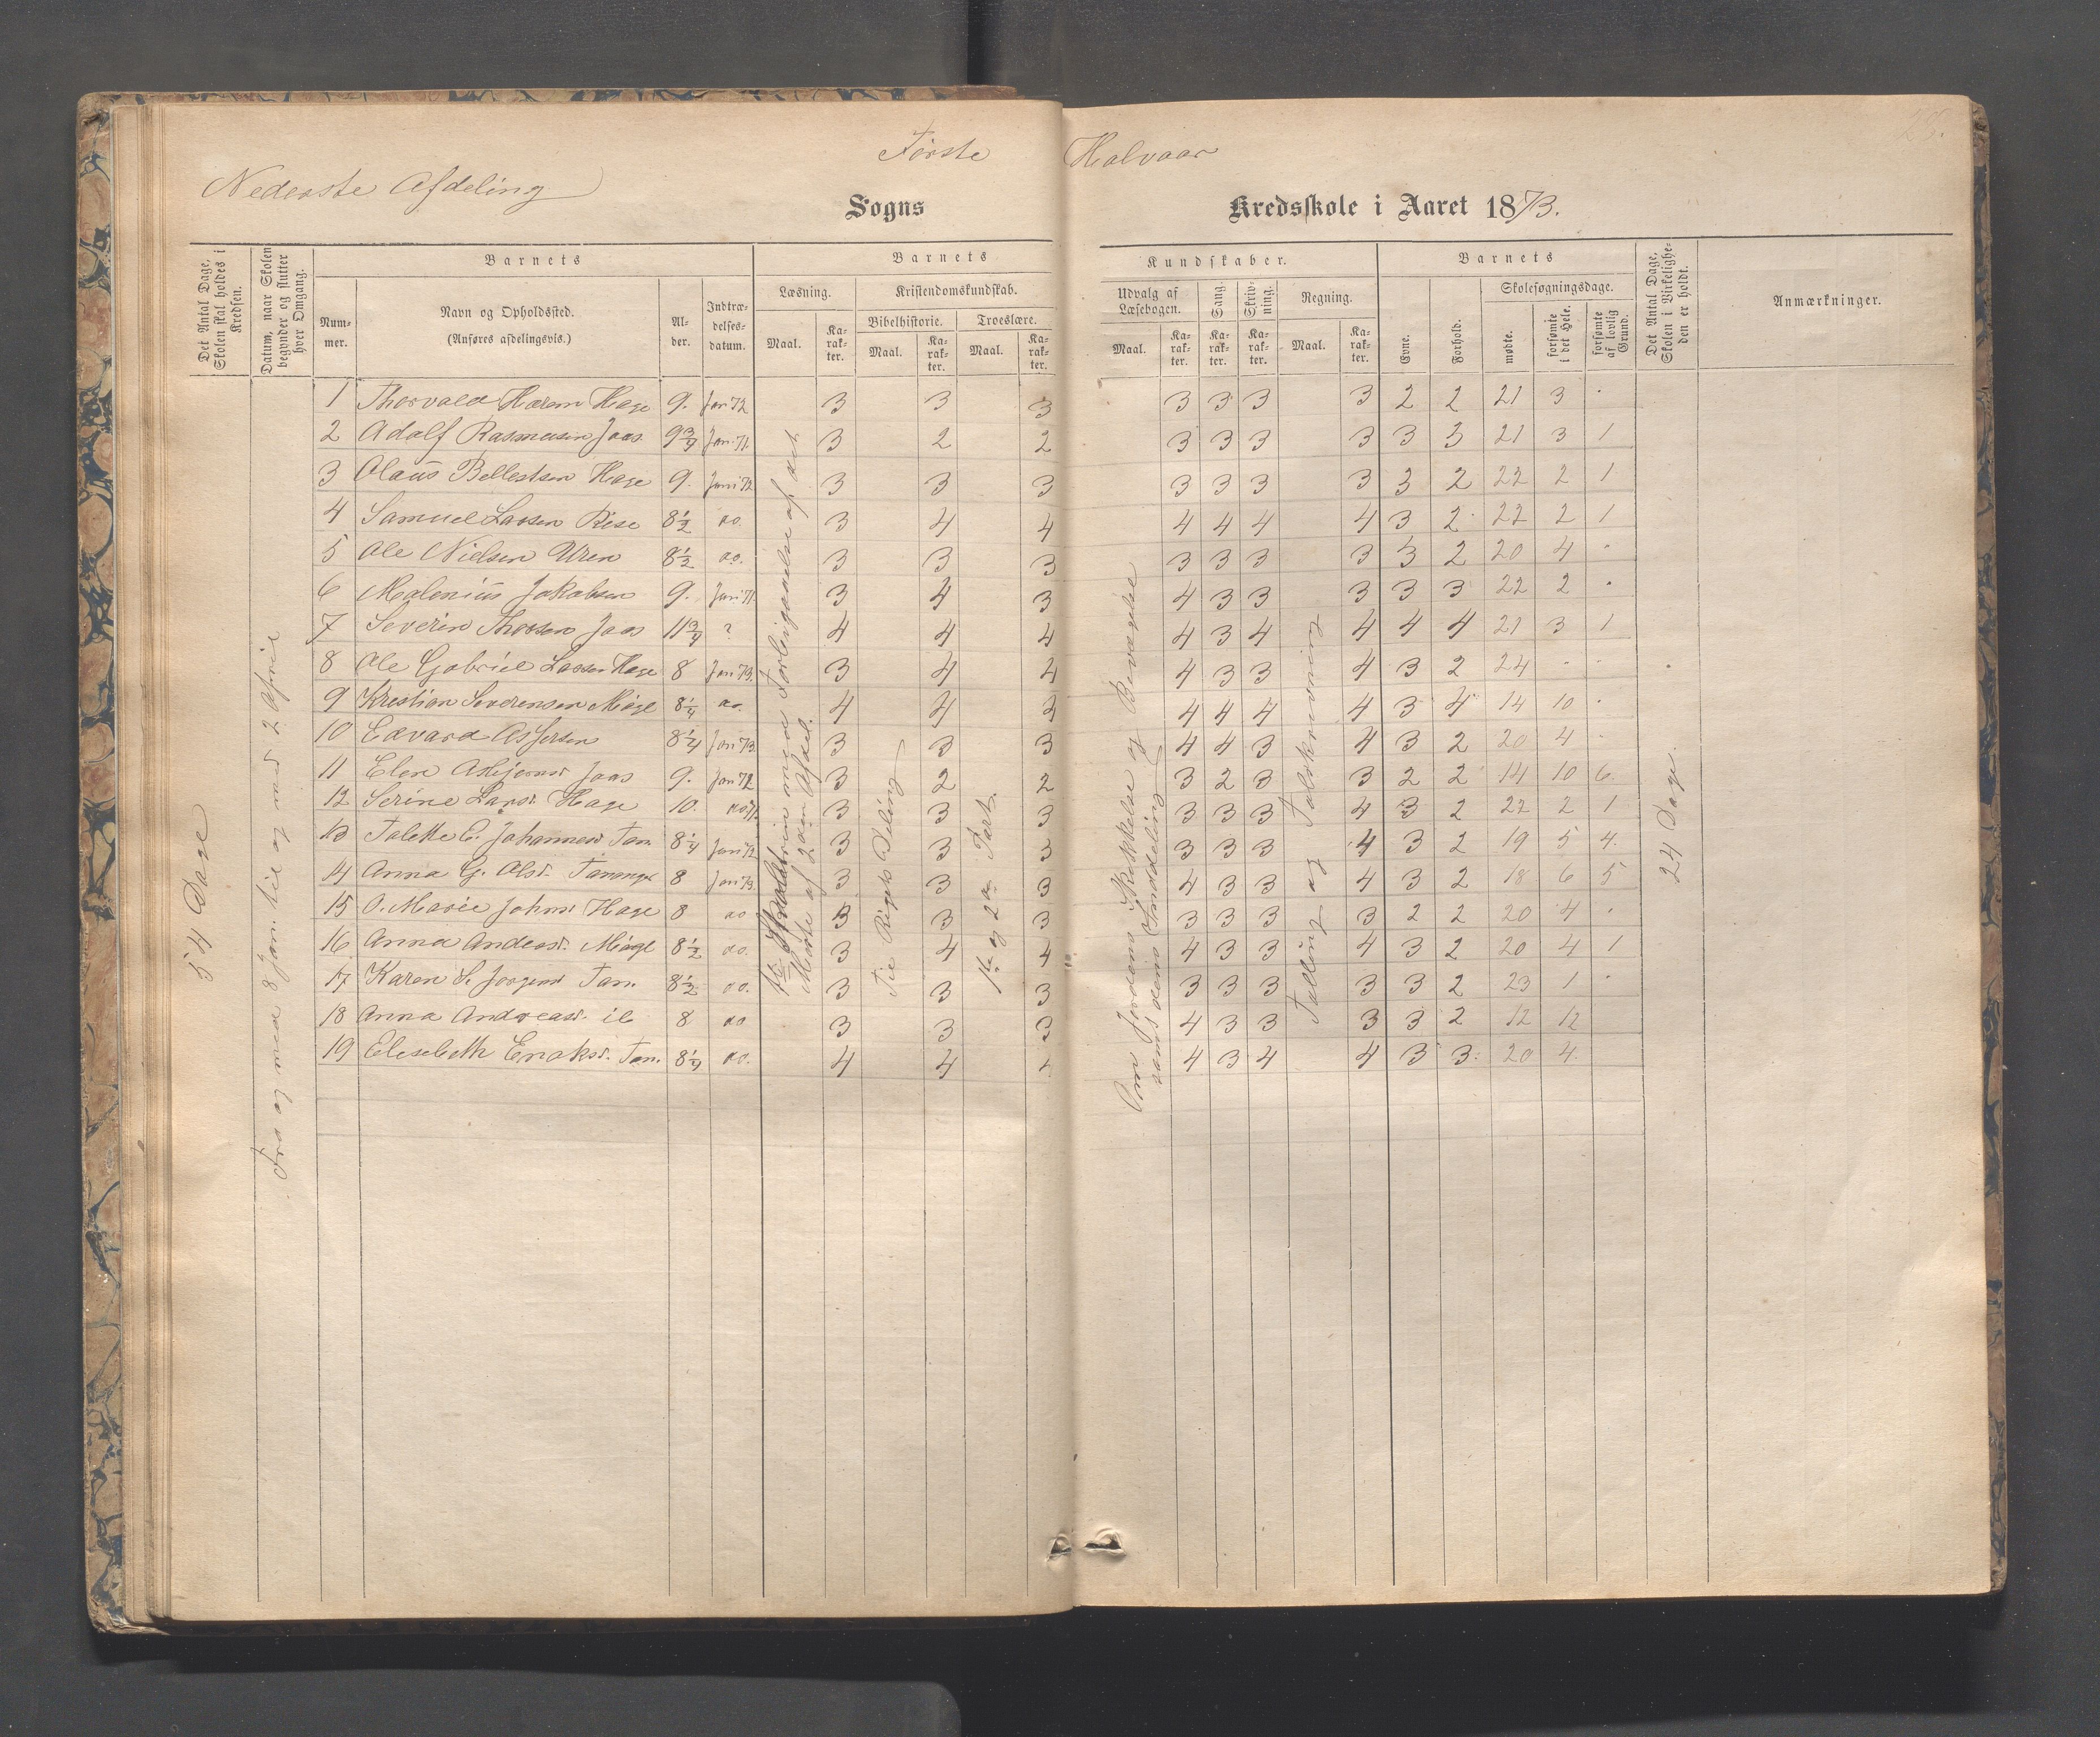 Første Halvaar
Nederste Afdeling
Sogns Kredsskole i Aaret 1873.
Det Antal Dage, Skolen skal holdes i Kredsen.
Datum, naar Skolen begynder og slutter hver Omgang.
Barnets
Nummer.
Navn og Opholdssted.
(Anføres afdelingsvis.)
Alder.
Indtrædelsesdatum.
Barnets
Læsning.
Maal.
Karakter.
Kristendomskundskab.
Bibelhistorie.
Maal.
Karakter.
Troeslære.
Maal.
Karakter.
Kundskaber.
Udvalg af Læsebogen.
Maal.
Karakter.
Sang.
Karakter.
Skrivning.
Karakter.
Regning.
Maal.
Karakter.
Barnets
Evne.
Forhold.
Skolesøgningsdage.
mødte.
forsømte i det Hele.
forsømte af lovlig Grund.
Det Antal Dage, Skolen i Virkeligheden er holdt.
Anmærkninger.
54 Dage
Fra og med 8 Jan. til og med 2 April
1 Thorvald Harem Hage 9. Jan 72 3 3 3 3 3 3 3 2 2 21 3 .
2 Adolf Rasmusen Jaas 9 3/4 Jan. 71. 3 2 2 3 3 3 3 3 3 21 3 1
3 Olaus Bellestsen Hage 9. Juni 72 3 3 3 3 3 3 3 3 2 22 2 1
4 Samuel Larsen Rise 8 1/2 do. 3 4 4 4 4 4 4 3 2 22 2 1
5 Ole Nielsen Uren 8 1/2 do. 3 3 3 3 3 3 3 3 2 20 4 .
6 Malenius Jakobsen 9. Jan 71. 3 4 3 4 3 3 3 3 3 22 2 .
7 Severin Thorsen Jaas 11 3/4 ? 4 4 4 4 3 4 4 4 4 21 3 1
8 Ole Gabriel Larsen Hage 8 Jan 73. 3 4 4 4 3 3 4 3 2 24 . .
9 Kristian Severensen Miåge 8 1/4 do. 4 4 4 4 4 4 4 3 4 14 10 .
10 Edvard Asjersen 8 1/4 Jan 73. 3 3 3 4 4 3 4 3 2 20 4 .
11 Elen Asbjørnsd Jaas 9. Jan 72 3 2 2 3 2 3 3 2 2 14 10 6.
12 Serine Larsd. Hage 10. do 71. 3 3 3 3 3 3 4 3 2 22 2 1
13 Talette C. Johannesd Tan. 8 1/4 Jan 72 3 3 3 3 3 3 4 3 2 19 5 4.
14 Anna G. Olsd. Tananger 8 Jan 73. 3 3 3 4 3 3 4 3 2 18 6 5
15 O. Marie Johnsd Hage 8 do 3 3 3 3 3 3 3 2 2 20 4 .
16 Anna Andersd. Miåge 8 1/2 do. 3 4 4 4 3 3 4 3 2 20 4 1
17 Karen S. Jorgensd Tan. 8 1/2 do. 3 3 3 3 3 3 3 3 2 23 1 .
18 Anna Andreasd. ib 8 do 3 3 3 4 3 3 3 3 2 12 12
19 Eliseabeth Enoksd. Tan. 8 1/4 do. 4 4 4 4 3 4 4 3 3 20 4
Til Rigets Deling
1ste og 2den Part.
Om Jordens Skikkelse og Bevægelse
samt dens Inddeling
Telling og Talskrivning
24 Dage.